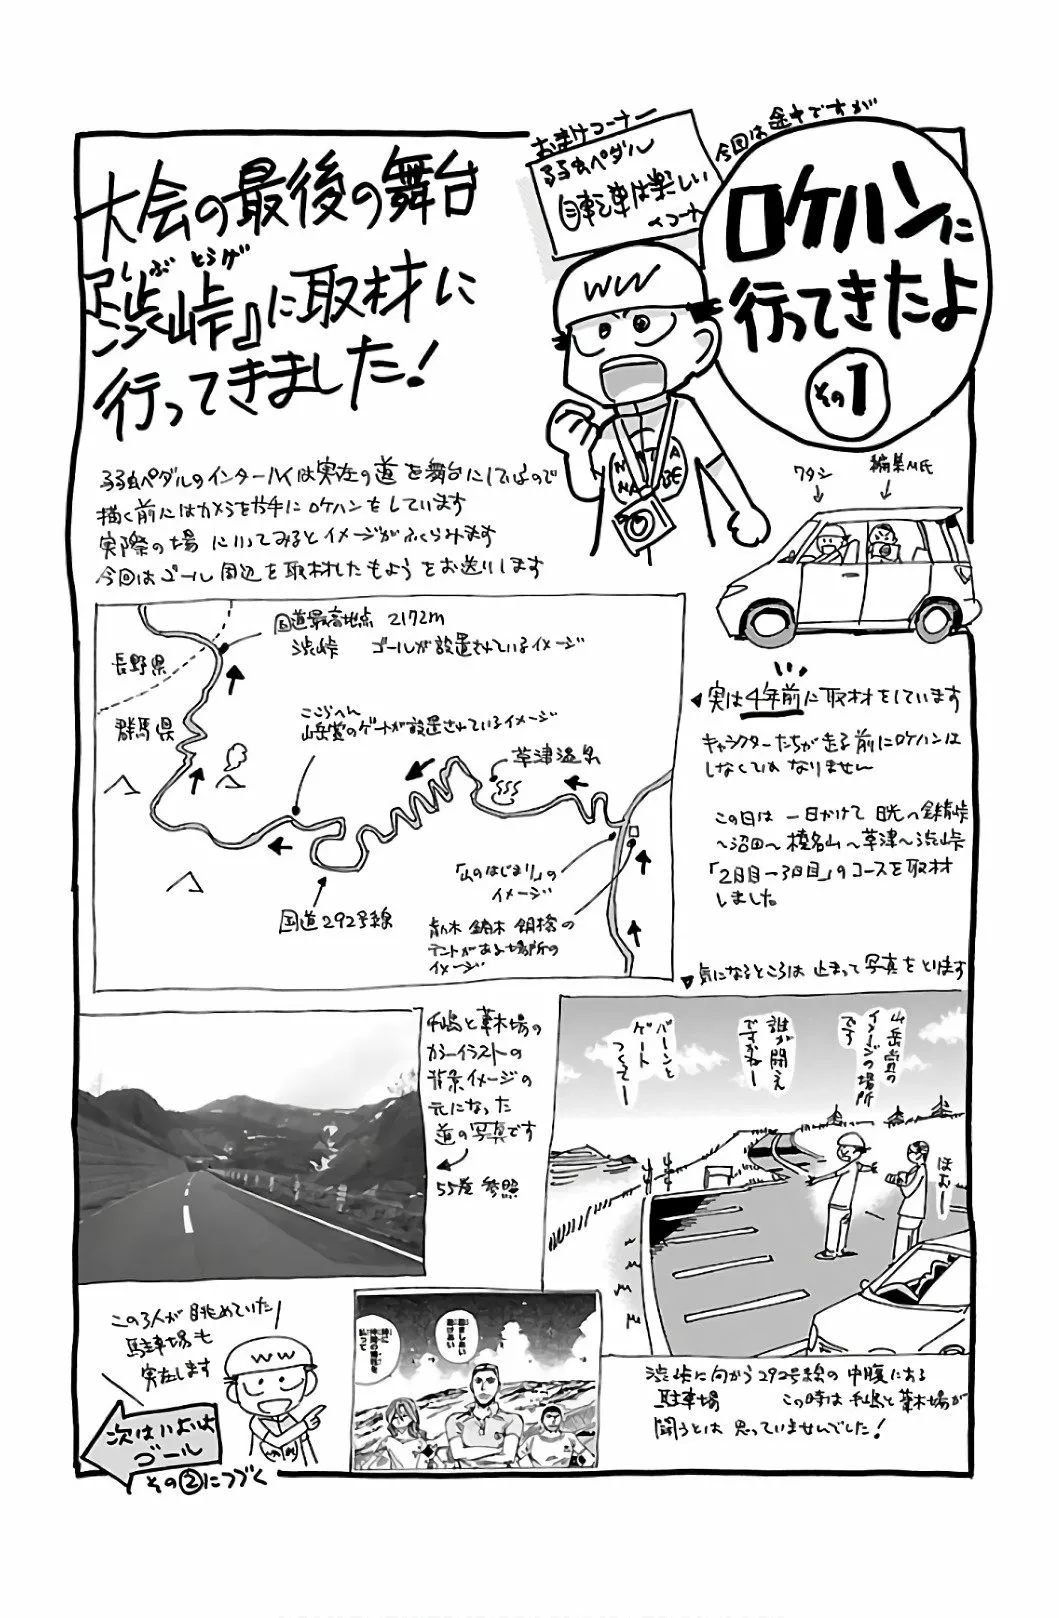 おまけコーナー
弱虫ペダル
自転車は楽しい
コーナー
今回は途中ですが
ロケハンに
行ってきたよ
その1
大会の最後の舞台
しぶ とうげ
『渋峠』に取材に
行ってきました!
WW
弱虫ペダルのインターハイは実在の道を舞台にしているので
描く前にはカメラを片手にロケハンをしています
実際の場に行ってみるとイメージがふくらみます
今回はゴール周辺を取材したもようをお送りします
ワタシ
編集M氏
実は4年前に取材をしています
キャラクターたちが走る前にロケハンは
しなくてはなりません
この日は 一日かけて 日光〜金精峠
〜沼田〜榛名山〜草津〜渋峠
「2日目-3日目」のコースを取材
しました。
国道最高地点 2172m
渋峠 ゴールが設置されているイメージ
長野県
群馬県
ここらへん
山岳賞のゲートが設置されているイメージ
草津温泉
「山のはじまり」の
イメージ
国道292号線
青八木 鏑木 銅橋の
テントがある場所の
イメージ
気になるところは 止まって写真をとります
手嶋と葦木場の
カラーイラストの
背景イメージの
元になった
道の写真です
55巻 参照
山岳賞の
イメージの場所
です
誰が闘え
ですかねー
バーンと
ゲート
つくてー
ほむー
渋峠に向かう292号線の中腹にある
駐車場 この時は手嶋と葦木場が
闘うとは 思っていませんでした!
この3人が眺めていた
駐車場も
実在します
WW
次はいよいよ
ゴール
その②につづく
励ましあい
助けあい